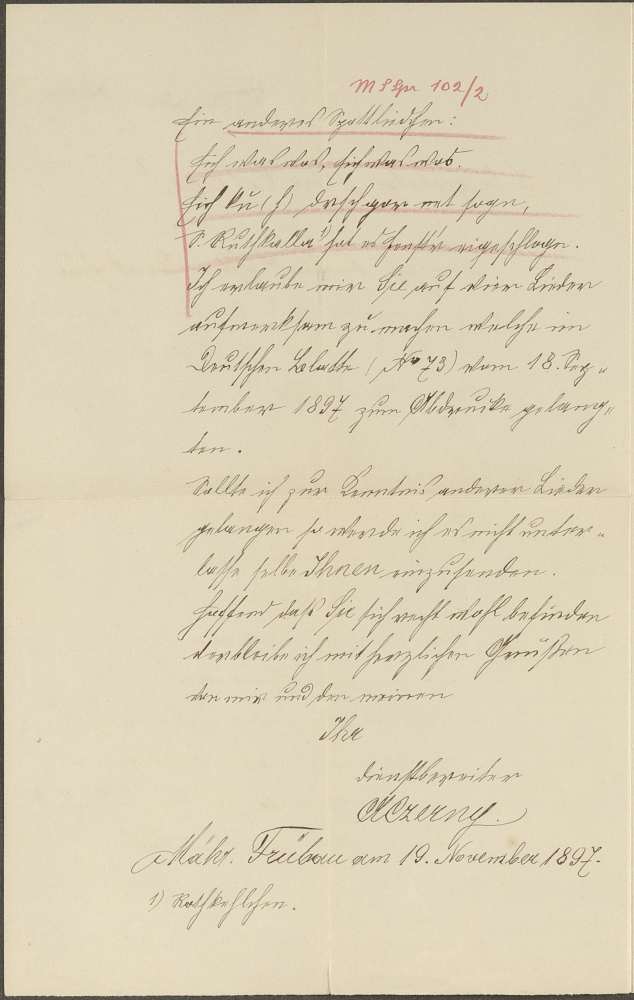 MSSpr 102/2
Ein anderes Spottliedchen:
Sich was was, sich was was.
Sich ku(h) derschgor net sogn,
S. Ruthkalla¹) hat es Fenst'r eigeschlogn.
Ich erlaube mir Sie auf vier Lieder
aufmerksam zu machen welche im
Deutschen Blatte (No 73) vom 18. Sep=
tember 1897 zum Abdrucke gelang=
ten.
Sollte ich zur Kenntnis anderer Lieder
gelangen so werde ich es nicht unter=
lasse selbe Ihnen einzusenden.
Hoffend daß Sie sich recht wohl befinden
verbleibe ich mit herzlichen Grüßen
von mir und den meinen
Ihr
dienstbereiter
ACzerny.
Mähr. Trübau am 19. November 1897.
1) Rothkehlchen.